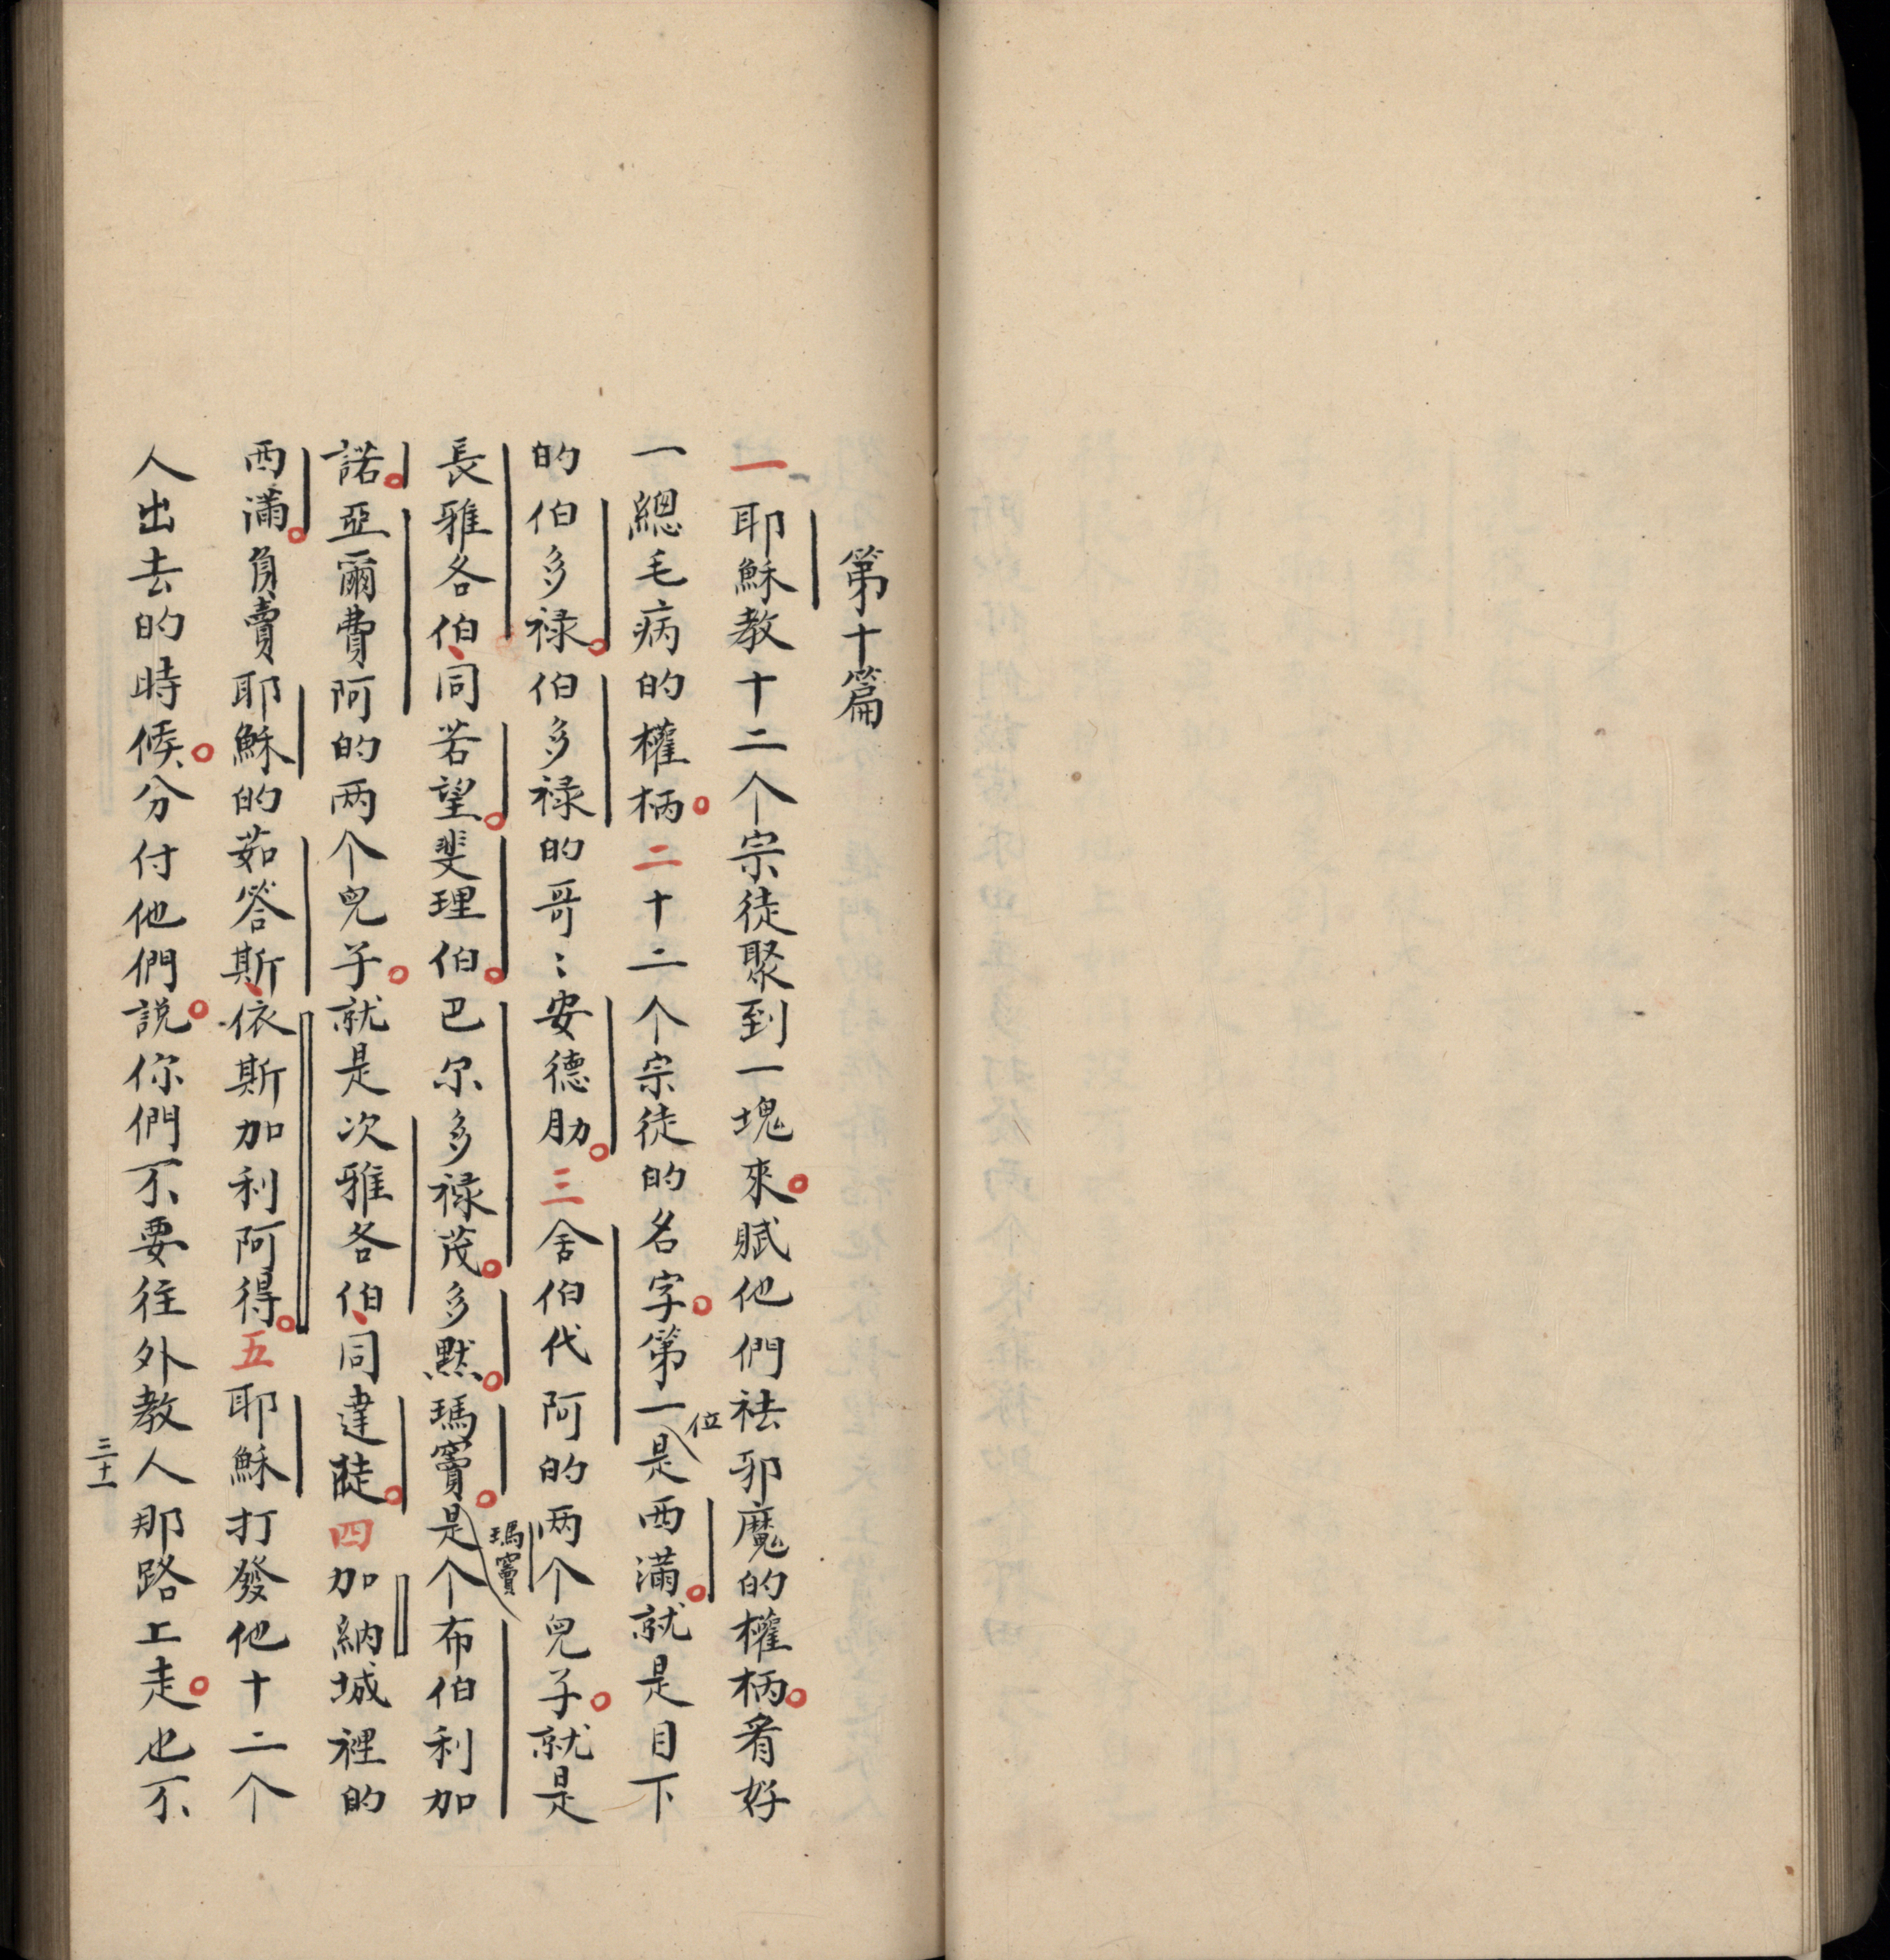 第十篇
一耶穌教十二个宗徒聚到一塊來。賦他們祛邪魔的權柄。看好
一總毛病的權柄。二十二个宗徒的名字。第一位是西滿。就是目下
的伯多禄。伯多禄的哥〻安德肋。三舍伯代阿的两个兒子。就是
長雅各伯、同若望。斐理伯。巴尔多禄茂。多黙。瑪竇。瑪竇是个布伯利加
諾。亞爾費阿的两个兒子。就是次雅各伯、同達陡。四加納城裡的
西滿。負賣耶穌的茹答斯、依斯加利阿得。五耶穌打發他十二个
人出去的時候。分付他們説。你們不要往外教人那路上走。也不
三十一